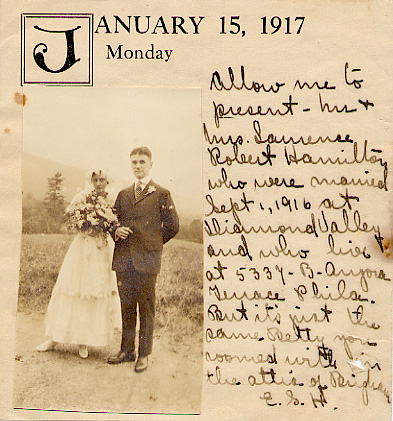 JANUARY 15, 1917
Monday
Allow me to
present - Mr &
Mrs. Laurence
Robert Hamilton
who were married
Sept 1, 1916 at
Diamond Valley
and who live
at 5337 - B - Angora
Terrace Phila.
But it's just the
same Betty you
roomed with in
the attic of
E. S. H.